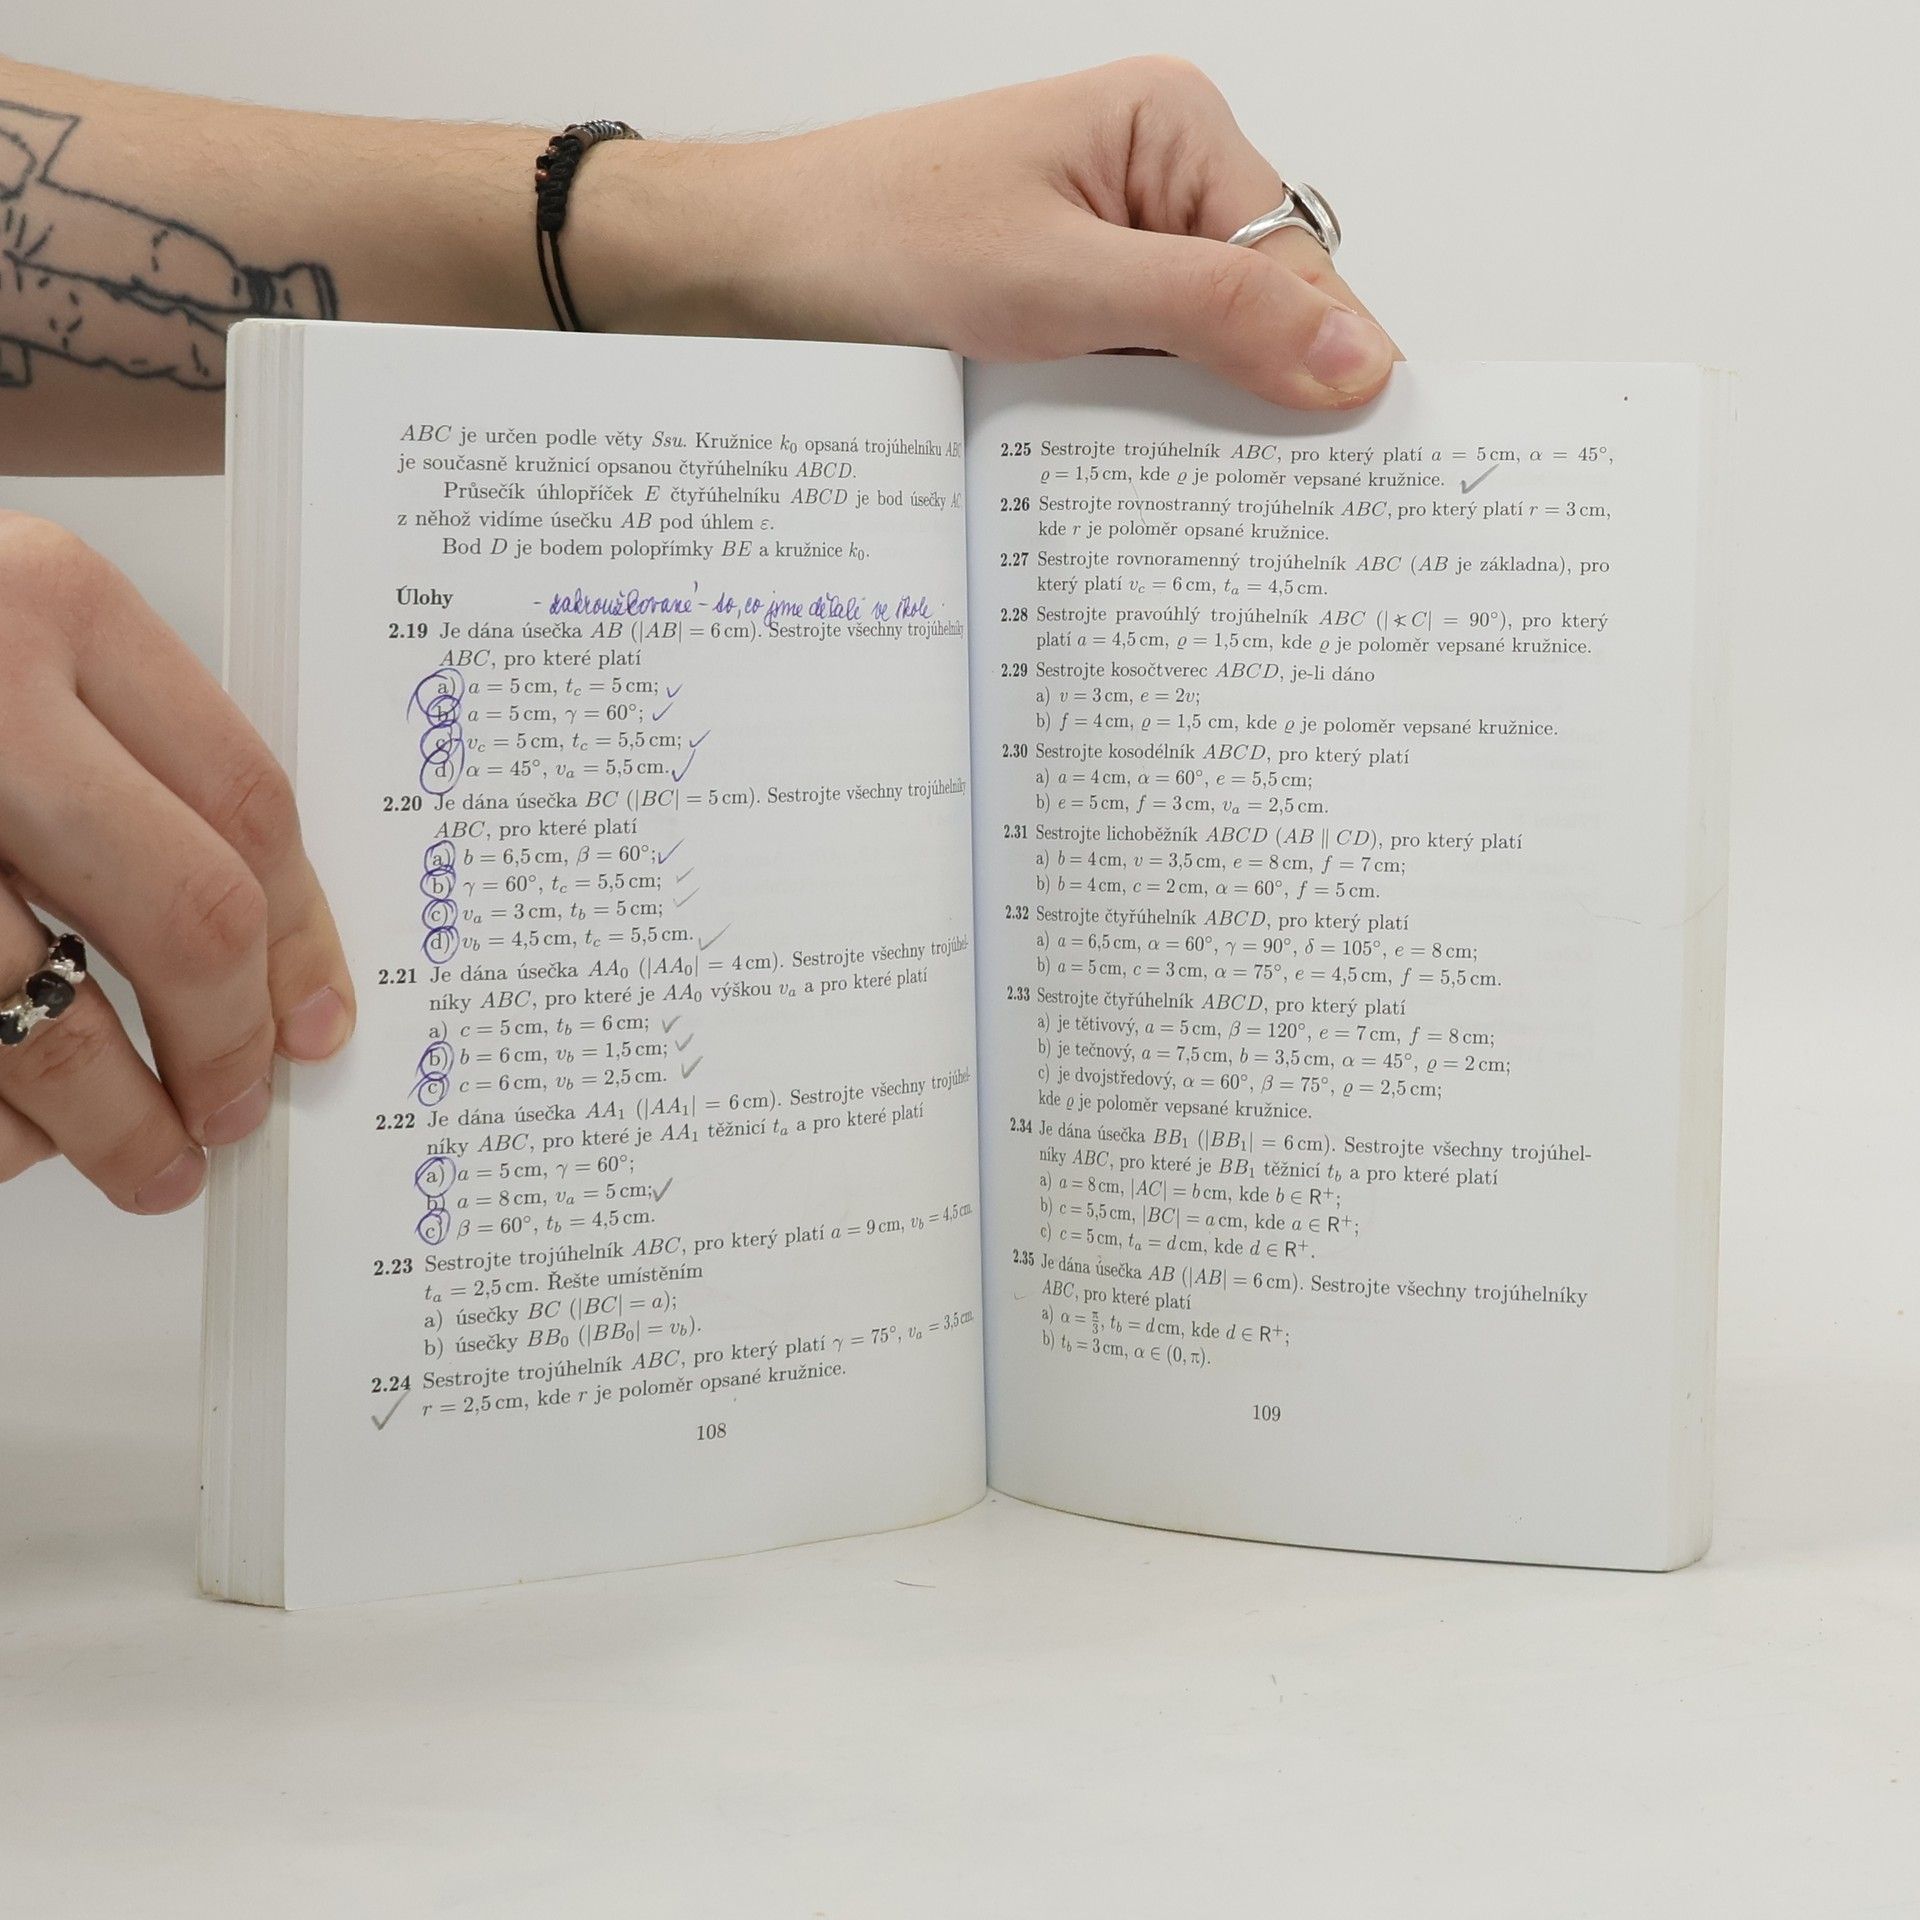 ABC je určen podle věty Ssu. Kružnice k₀ opsaná trojúhelníku ABC
je současně kružnicí opsanou čtyřúhelníku ABCD.
Průsečík úhlopříček E čtyřúhelníku ABCD je bod úsečky AC,
z něhož vidíme úsečku AB pod úhlem ε.
Bod D je bodem polopřímky BE a kružnice k₀.
Úlohy - zakroužkované - to, co jsme dělali ve škole
2.19 Je dána úsečka AB (|AB| = 6 cm). Sestrojte všechny trojúhelníky
ABC, pro které platí
a) a = 5 cm, t_c = 5 cm; ✓
b) a = 5 cm, γ = 60°; ✓
c) v_c = 5 cm, t_c = 5,5 cm; ✓
d) α = 45°, v_a = 5,5 cm. ✓
2.20 Je dána úsečka BC (|BC| = 5 cm). Sestrojte všechny trojúhelníky
ABC, pro které platí
a) b = 6,5 cm, β = 60°; ✓
b) γ = 60°, t_c = 5,5 cm; ✓
c) v_a = 3 cm, t_b = 5 cm; ✓
d) v_b = 4,5 cm, t_c = 5,5 cm. ✓
2.21 Je dána úsečka AA₀ (|AA₀| = 4 cm). Sestrojte všechny trojúhel-
níky ABC, pro které je AA₀ výškou v_a a pro které platí
a) c = 5 cm, t_b = 6 cm; ✓
b) b = 6 cm, v_b = 1,5 cm; ✓
c) c = 6 cm, v_b = 2,5 cm. ✓
2.22 Je dána úsečka AA₁ (|AA₁| = 6 cm). Sestrojte všechny trojúhel-
níky ABC, pro které je AA₁ těžnicí t_a a pro které platí
a) a = 5 cm, γ = 60°;
b) a = 8 cm, v_a = 5 cm; ✓
c) β = 60°, t_b = 4,5 cm.
2.23 Sestrojte trojúhelník ABC, pro který platí a = 9 cm, v_b = 4,5 cm,
t_a = 2,5 cm. Řešte umístěním
a) úsečky BC (|BC| = a);
b) úsečky BB₀ (|BB₀| = v_b).
2.24 Sestrojte trojúhelník ABC, pro který platí γ = 75°, v_a = 3,5 cm,
✓ r = 2,5 cm, kde r je poloměr opsané kružnice.
108
2.25 Sestrojte trojúhelník ABC, pro který platí a = 5 cm, α = 45°,
ϱ = 1,5 cm, kde ϱ je poloměr vepsané kružnice. ✓
2.26 Sestrojte rovnostranný trojúhelník ABC, pro který platí r = 3 cm,
kde r je poloměr opsané kružnice.
2.27 Sestrojte rovnoramenný trojúhelník ABC (AB je základna), pro
který platí v_c = 6 cm, t_a = 4,5 cm.
2.28 Sestrojte pravoúhlý trojúhelník ABC (|∢C| = 90°), pro který
platí a = 4,5 cm, ϱ = 1,5 cm, kde ϱ je poloměr vepsané kružnice.
2.29 Sestrojte kosočtverec ABCD, je-li dáno
a) v = 3 cm, e = 2v;
b) f = 4 cm, ϱ = 1,5 cm, kde ϱ je poloměr vepsané kružnice.
2.30 Sestrojte kosodélník ABCD, pro který platí
a) a = 4 cm, α = 60°, e = 5,5 cm;
b) e = 5 cm, f = 3 cm, v_a = 2,5 cm.
2.31 Sestrojte lichoběžník ABCD (AB ∥ CD), pro který platí
a) b = 4 cm, v = 3,5 cm, e = 8 cm, f = 7 cm;
b) b = 4 cm, c = 2 cm, α = 60°, f = 5 cm.
2.32 Sestrojte čtyřúhelník ABCD, pro který platí
a) a = 6,5 cm, α = 60°, γ = 90°, δ = 105°, e = 8 cm;
b) a = 5 cm, c = 3 cm, α = 75°, e = 4,5 cm, f = 5,5 cm.
2.33 Sestrojte čtyřúhelník ABCD, pro který platí
a) je tětivový, a = 5 cm, β = 120°, e = 7 cm, f = 8 cm;
b) je tečnový, a = 7,5 cm, b = 3,5 cm, α = 45°, ϱ = 2 cm;
c) je dvojstředový, α = 60°, β = 75°, ϱ = 2,5 cm;
kde ϱ je poloměr vepsané kružnice.
2.34 Je dána úsečka BB₁ (|BB₁| = 6 cm). Sestrojte všechny trojúhel-
níky ABC, pro které je BB₁ těžnicí t_b a pro které platí
a) a = 8 cm, |AC| = b cm, kde b ∈ R⁺;
b) c = 5,5 cm, |BC| = a cm, kde a ∈ R⁺;
c) c = 5 cm, t_a = d cm, kde d ∈ R⁺.
2.35 Je dána úsečka AB (|AB| = 6 cm). Sestrojte všechny trojúhelníky
ABC, pro které platí
a) α = π/3, t_b = d cm, kde d ∈ R⁺;
b) t_b = 3 cm, α ∈ (0, π).
109